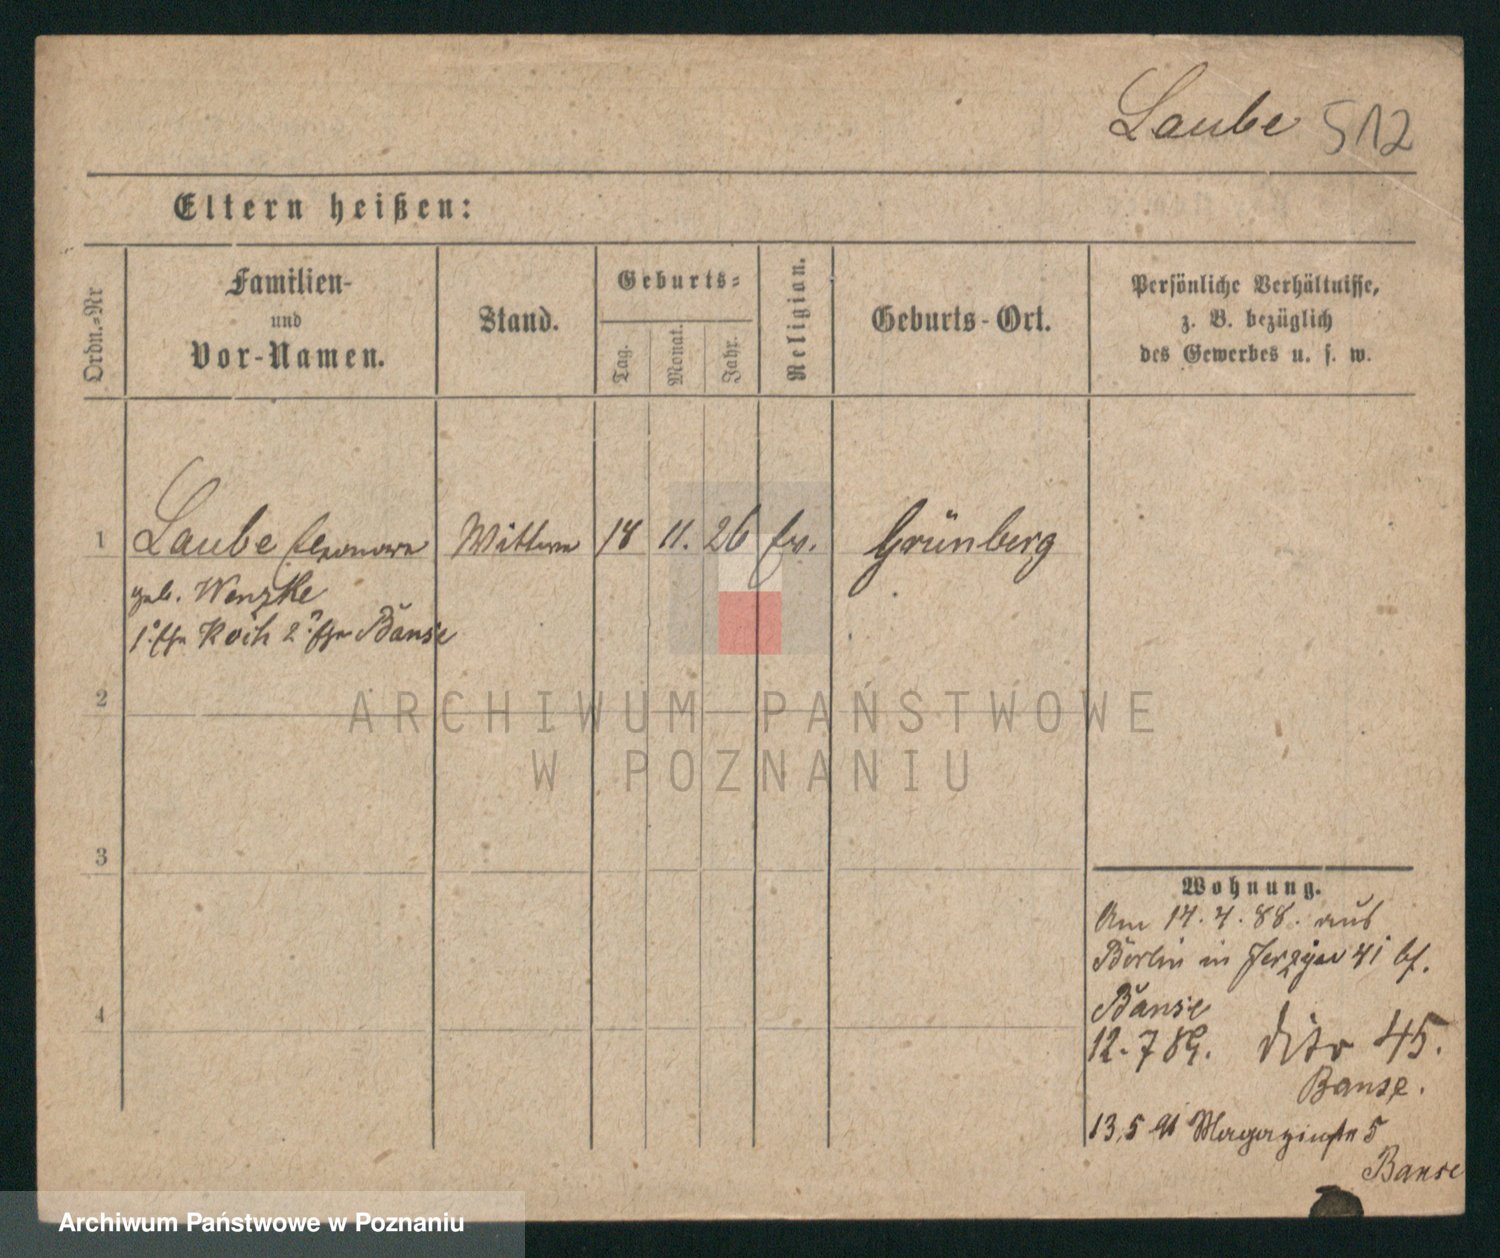 Laube 512
Eltern heißen:
Ordn.-Nr
Familien-
und
Vor-Namen.
Stand.
Geburts-
Tag.
Monat.
Jahr.
Religion.
Geburts-Ort.
Persönliche Verhältnisse,
z. B. bezüglich
des Gewerbes u. s. w.
1 Laube Eleonore Wittwe 18 11. 26 ev. Grünberg
geb. Wenzke
1° Koch 2° Banse
2
ARCHIWUM PAŃSTWOWE
W POZNANIU
3
4
Wohnung.
Am 14. 4. 88. aus
Berlin in Jerzyce 41 bf.
Banse
12. 7 89. dito 45.
Banse.
13.5 91 Magazinstr 5
Banse
Archiwum Państwowe w Poznaniu